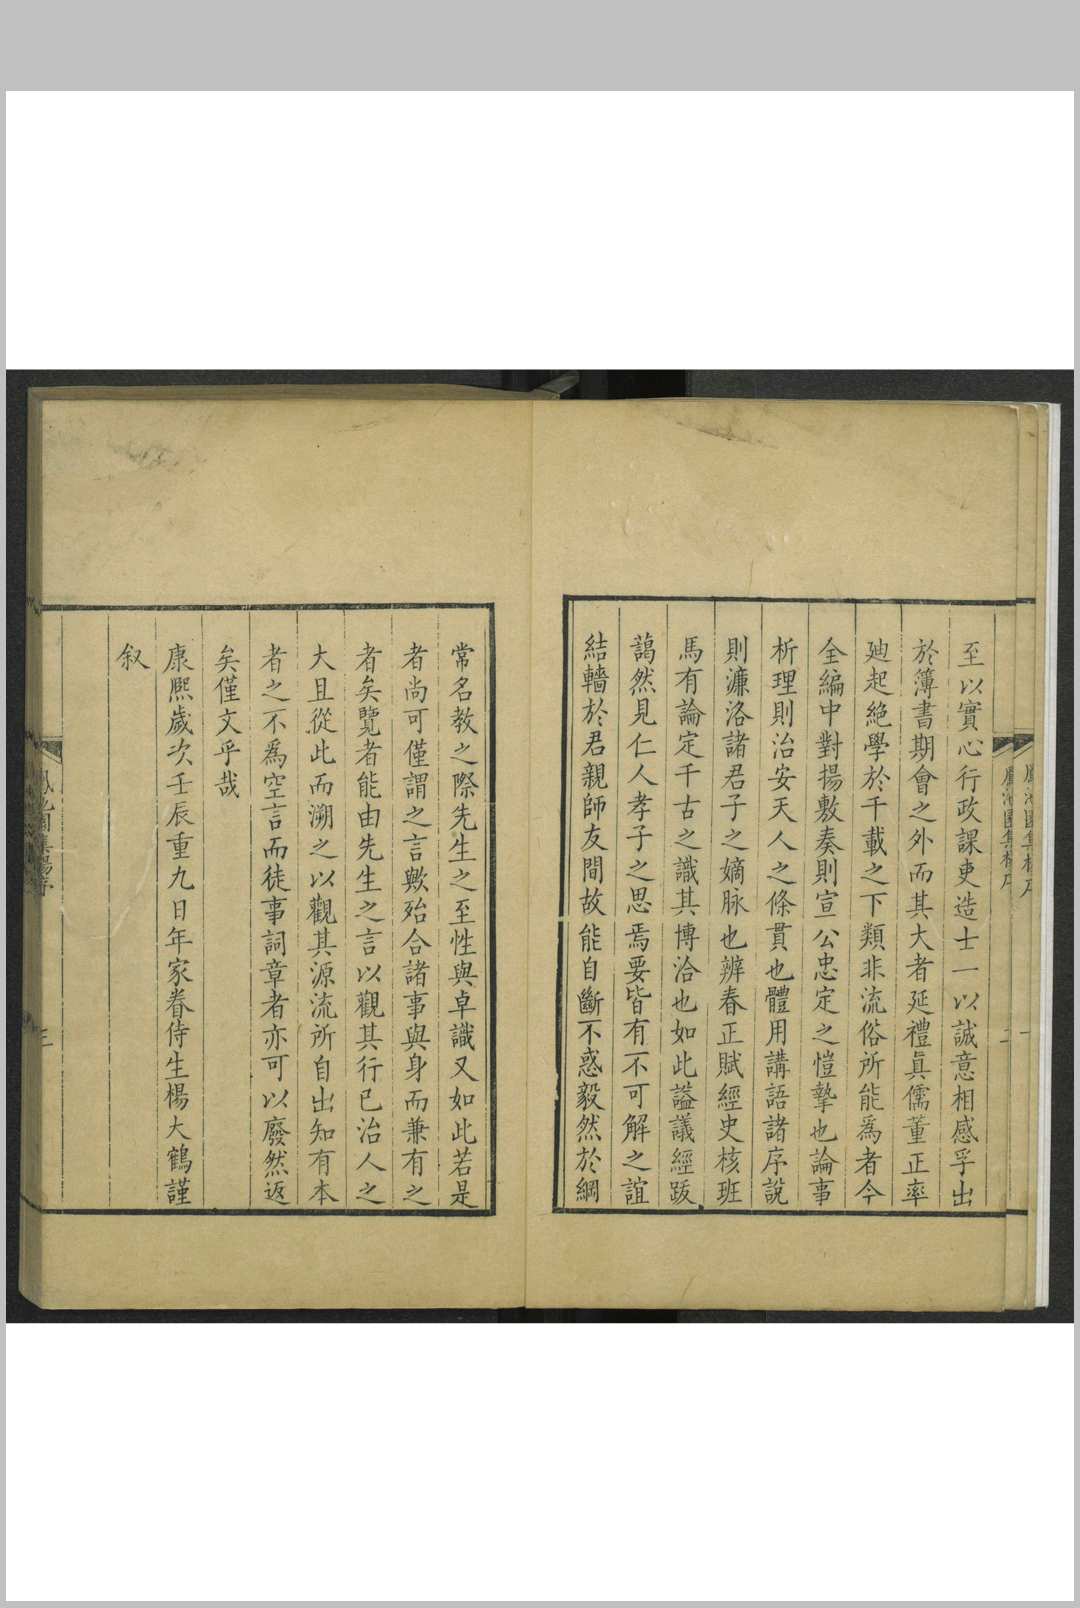 至以實心行政課吏造士一以誠意相感孚出
於簿書期會之外而其大者延禮真儒董正率
廸起絶學於千載之下類非流俗所能爲者今
全編中對揚敷奏則宣公忠定之愷摯也論事
析理則治安天人之條貫也體用講語諸序說
則濂洛諸君子之嫡脉也辨春正賦經史核班
馬有論定千古之識其博洽也如此謚議經跋
藹然見仁人孝子之思焉要皆有不可解之誼
結轖於君親師友間故能自斷不惑毅然於綱
常名教之際先生之至性與卓識又如此若是
者尚可僅謂之言歟殆合諸事與身而兼有之
者矣覽者能由先生之言以觀其行已治人之
大且從此而溯之以觀其源流所自出知有本
者之不爲空言而徒事詞章者亦可以廢然返
矣僅文乎哉
康熙歲次壬辰重九日年家眷侍生楊大鶴謹
叙
鳳池園集楊序
三